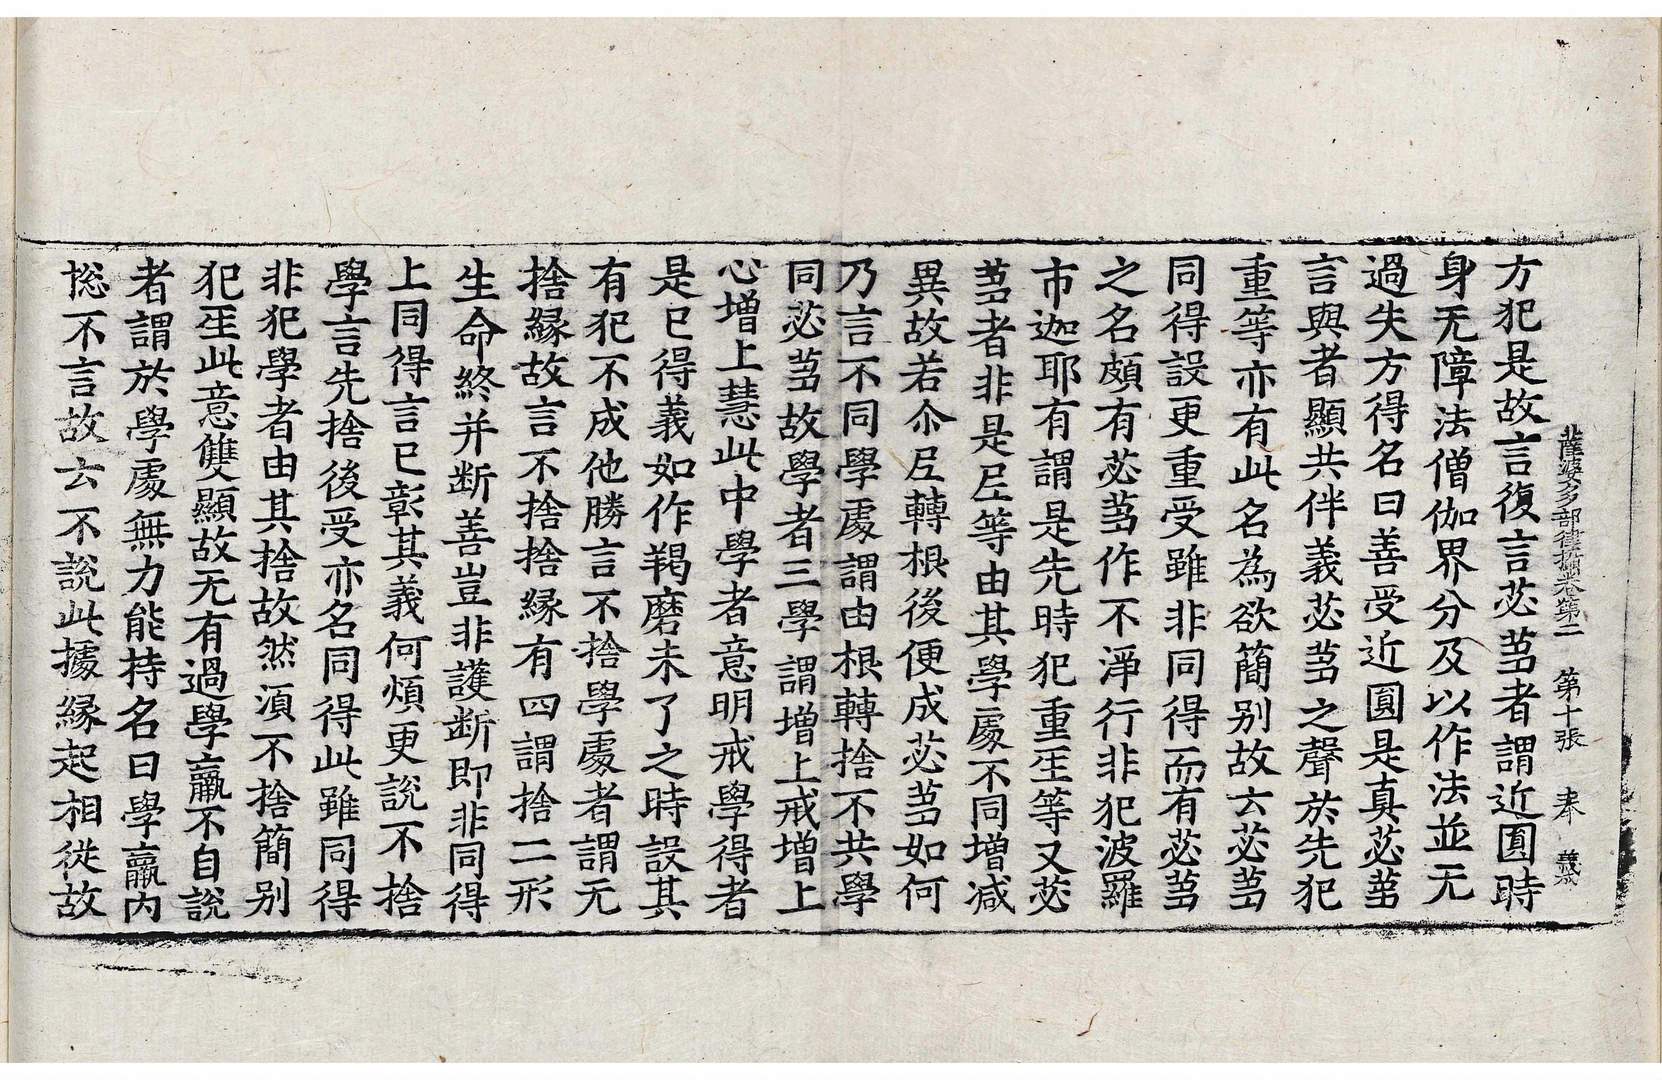 薩婆多部律攝卷第二　第十張　奉　義成
方犯是故言復言苾芻者謂近圓時
身无障法僧伽界分及以作法並无
過失方得名曰善受近圓是真苾芻
言與者顯共伴義苾芻之聲於先犯
重等亦有此名為欲簡別故云苾芻
同得設更重受雖非同得而有苾芻
之名頗有苾芻作不淨行非犯波羅
市迦耶有謂是先時犯重𡉵等又苾
芻者非是𡉵等由其學處不同增减
異故若尒𡉵轉根後便成苾芻如何
乃言不同學處謂由根轉捨不共學
同苾芻故學者三學謂增上戒增上
心增上慧此中學者意明戒學得者
是已得義如作羯磨未了之時設其
有犯不成他勝言不捨學處者謂无
捨緣故言不捨捨緣有四謂捨二形
生命終并断善豈非護断即非同得
上同得言已彰其義何煩更說不捨
學言先捨後受亦名同得此雖同得
非犯學者由其捨故然湏不捨簡別
犯𡉵此意雙顯故无有過學羸不自說
者謂於學處無力能持名曰學羸內
惚不言故云不說此據緣起相從故